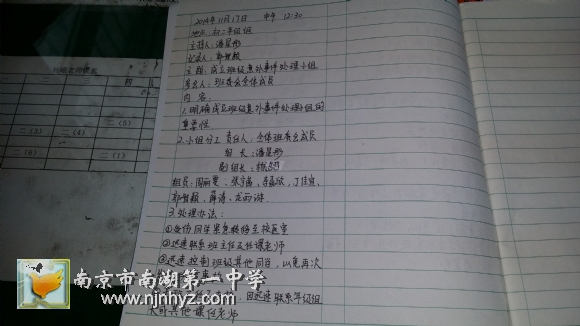 2014年11月17日 中午 12:30
地点:初二年级组
主持人:潘星彤
记录人:郭智毅
主题:成立班级意外事件处理小组
参会人:班委会全体成员
内容:
1.明确成立班级意外事件处理小组的
重要性
2.小组分工 责任人:全体班委会成员
组长:潘星彤
副组长:
组员:周丽雯、丁佳宜、
郭智毅、薛涛、龙雨洋.
3.处理办法:
①受伤同学紧急转移至校医室
②迅速联系班主任及任课老师
③迅速控制班级其他同学,以免再次
应迅速联系年级组
其他课任老师
南京市南湖第一中学
www.njnhyz.com
二(3)
二(4)
二(5)
二(1)
四